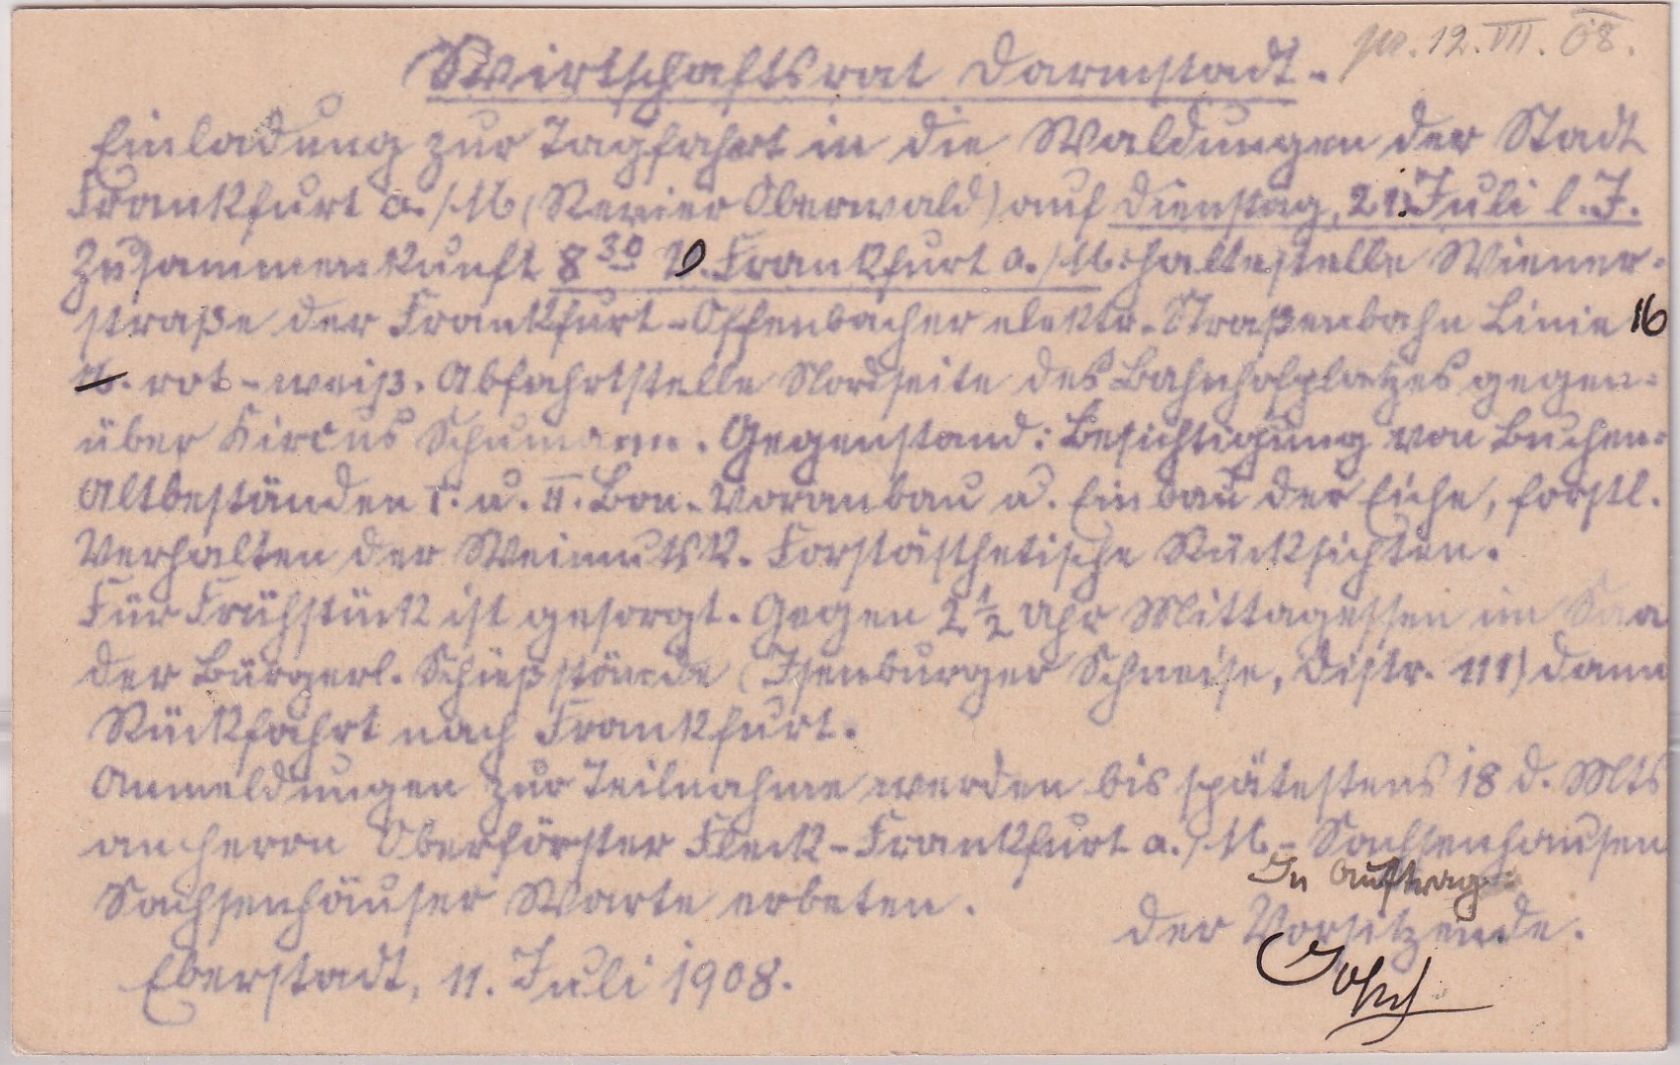 pr. 12. VII. 08.
Wirtschaftsrat Darmstadt.
Einladung zur Tagfahrt in die Waldungen der Stadt
Frankfurt a./M (Revier Oberwald) auf Dienstag, 21. Juli l. J.
Zusammenkunft 8 30 V. Frankfurt a./M. Haltestelle Wiener-
straße der Frankfurt-Offenbacher elektr. Straßenbahn Linie 16
rot-weiß. Abfahrtstelle Nordseite des Bahnhofplatzes gegen-
über Circus Schumann. Gegenstand: Besichtigung von Buchen-
Altbeständen I. u. II. Bon. Voranbau u. Einbau der Eiche, forstl.
Verhalten der Weimutsk. Forstästhetische Rücksichten.
Für Frühstück ist gesorgt. Gegen 2 1/2 Uhr Mittagessen im Saa
der Bürgerl. Schießstände (Isenburger Schneise, Distr. 111) dann
Rückfahrt nach Frankfurt.
Anmeldungen zur Teilnahme werden bis spätestens 18 d. Mts
an Herrn Oberförster Fleck-Frankfurt a./M.-Sachsenhausen
Sachsenhäuser Warte erbeten.
In Auftrag:
Der Vorsitzende.
Eberstadt, 11. Juli 1908.